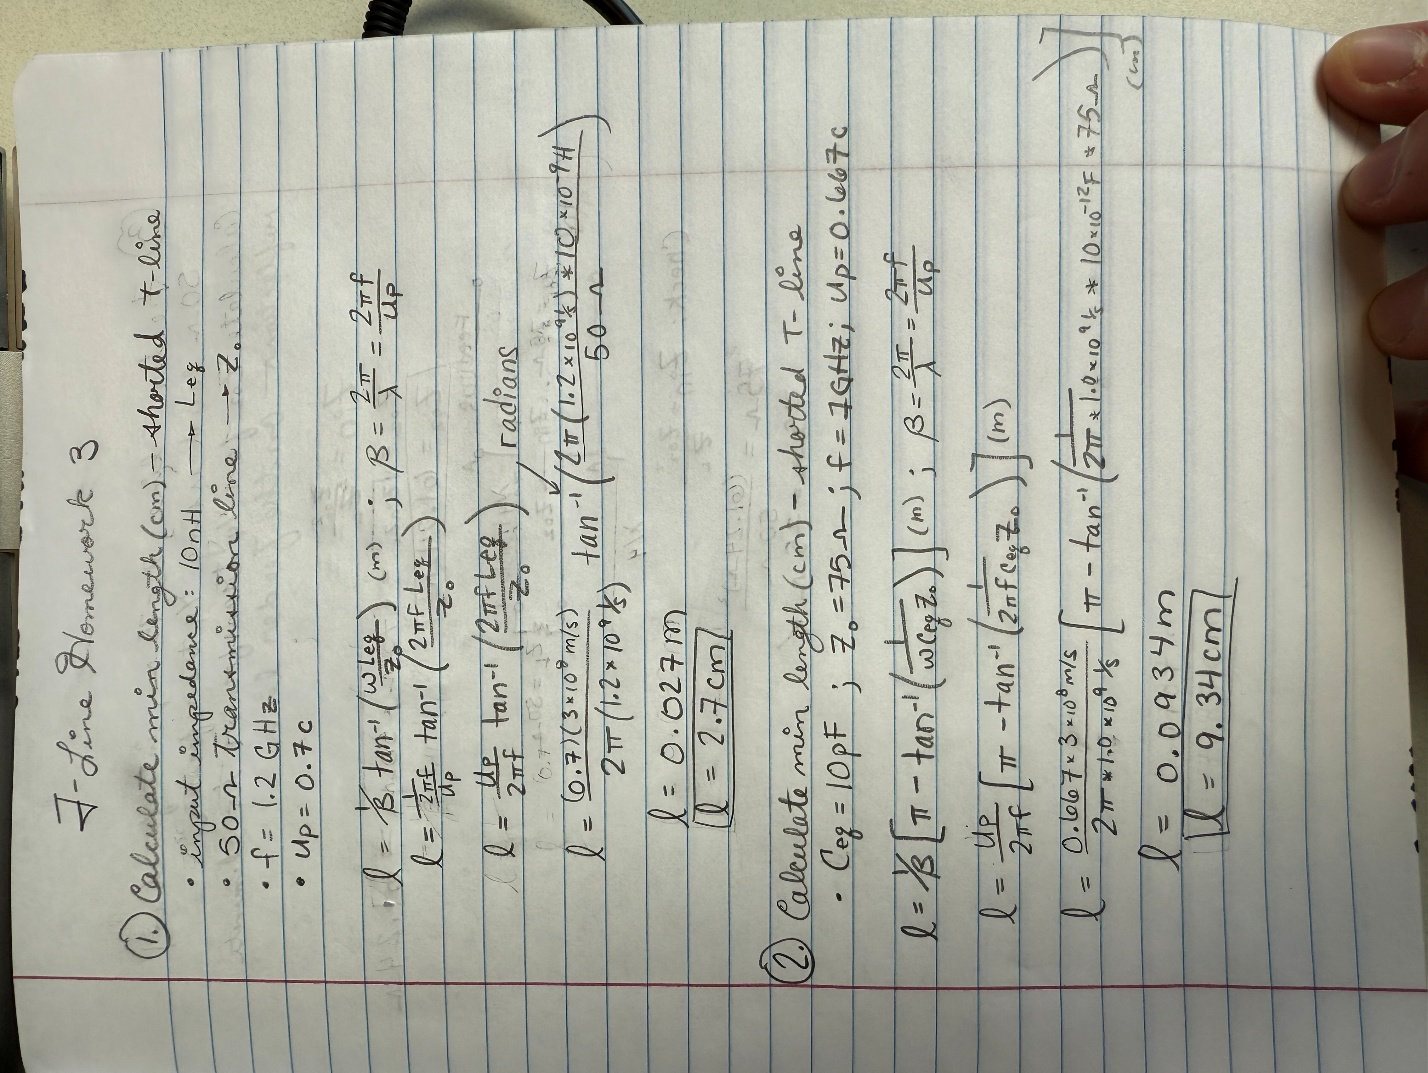 T-Line Homework 3
1.) Calculate min length (cm) - shorted t-line
• input impedence: 10nH → Leq
• 50-Ω transmission line → Z₀
• f = 1.2 GHz
• up = 0.7c
l = 1/β tan⁻¹(ωLeq/Z₀) (m) ; β = 2π/λ = 2πf/up
l = 1/(2πf/up) tan⁻¹(2πf Leq/Z₀)
l = up/2πf tan⁻¹(2πf Leq/Z₀) radians
l = (0.7)(3×10⁸ m/s)/2π(1.2×10⁹ 1/s) tan⁻¹(2π(1.2×10⁹ 1/s)*10×10⁻⁹H/50Ω)
l = 0.027m
l = 2.7cm
2.) Calculate min length (cm) - shorted T-line
• Ceq = 10pF ; Z₀ = 75Ω ; f = 1GHz ; up = 0.667c
l = 1/β [π - tan⁻¹(1/ωCeqZ₀)] (m) ; β = 2π/λ = 2πf/up
l = up/2πf [π - tan⁻¹(1/2πfCeqZ₀)] (m)
l = 0.667×3×10⁸ m/s/2π*1.0×10⁹ 1/s [π - tan⁻¹(1/2π*1.0×10⁹ 1/s*10×10⁻¹²F*75Ω)] (m)
l = 0.0934m
l = 9.34cm